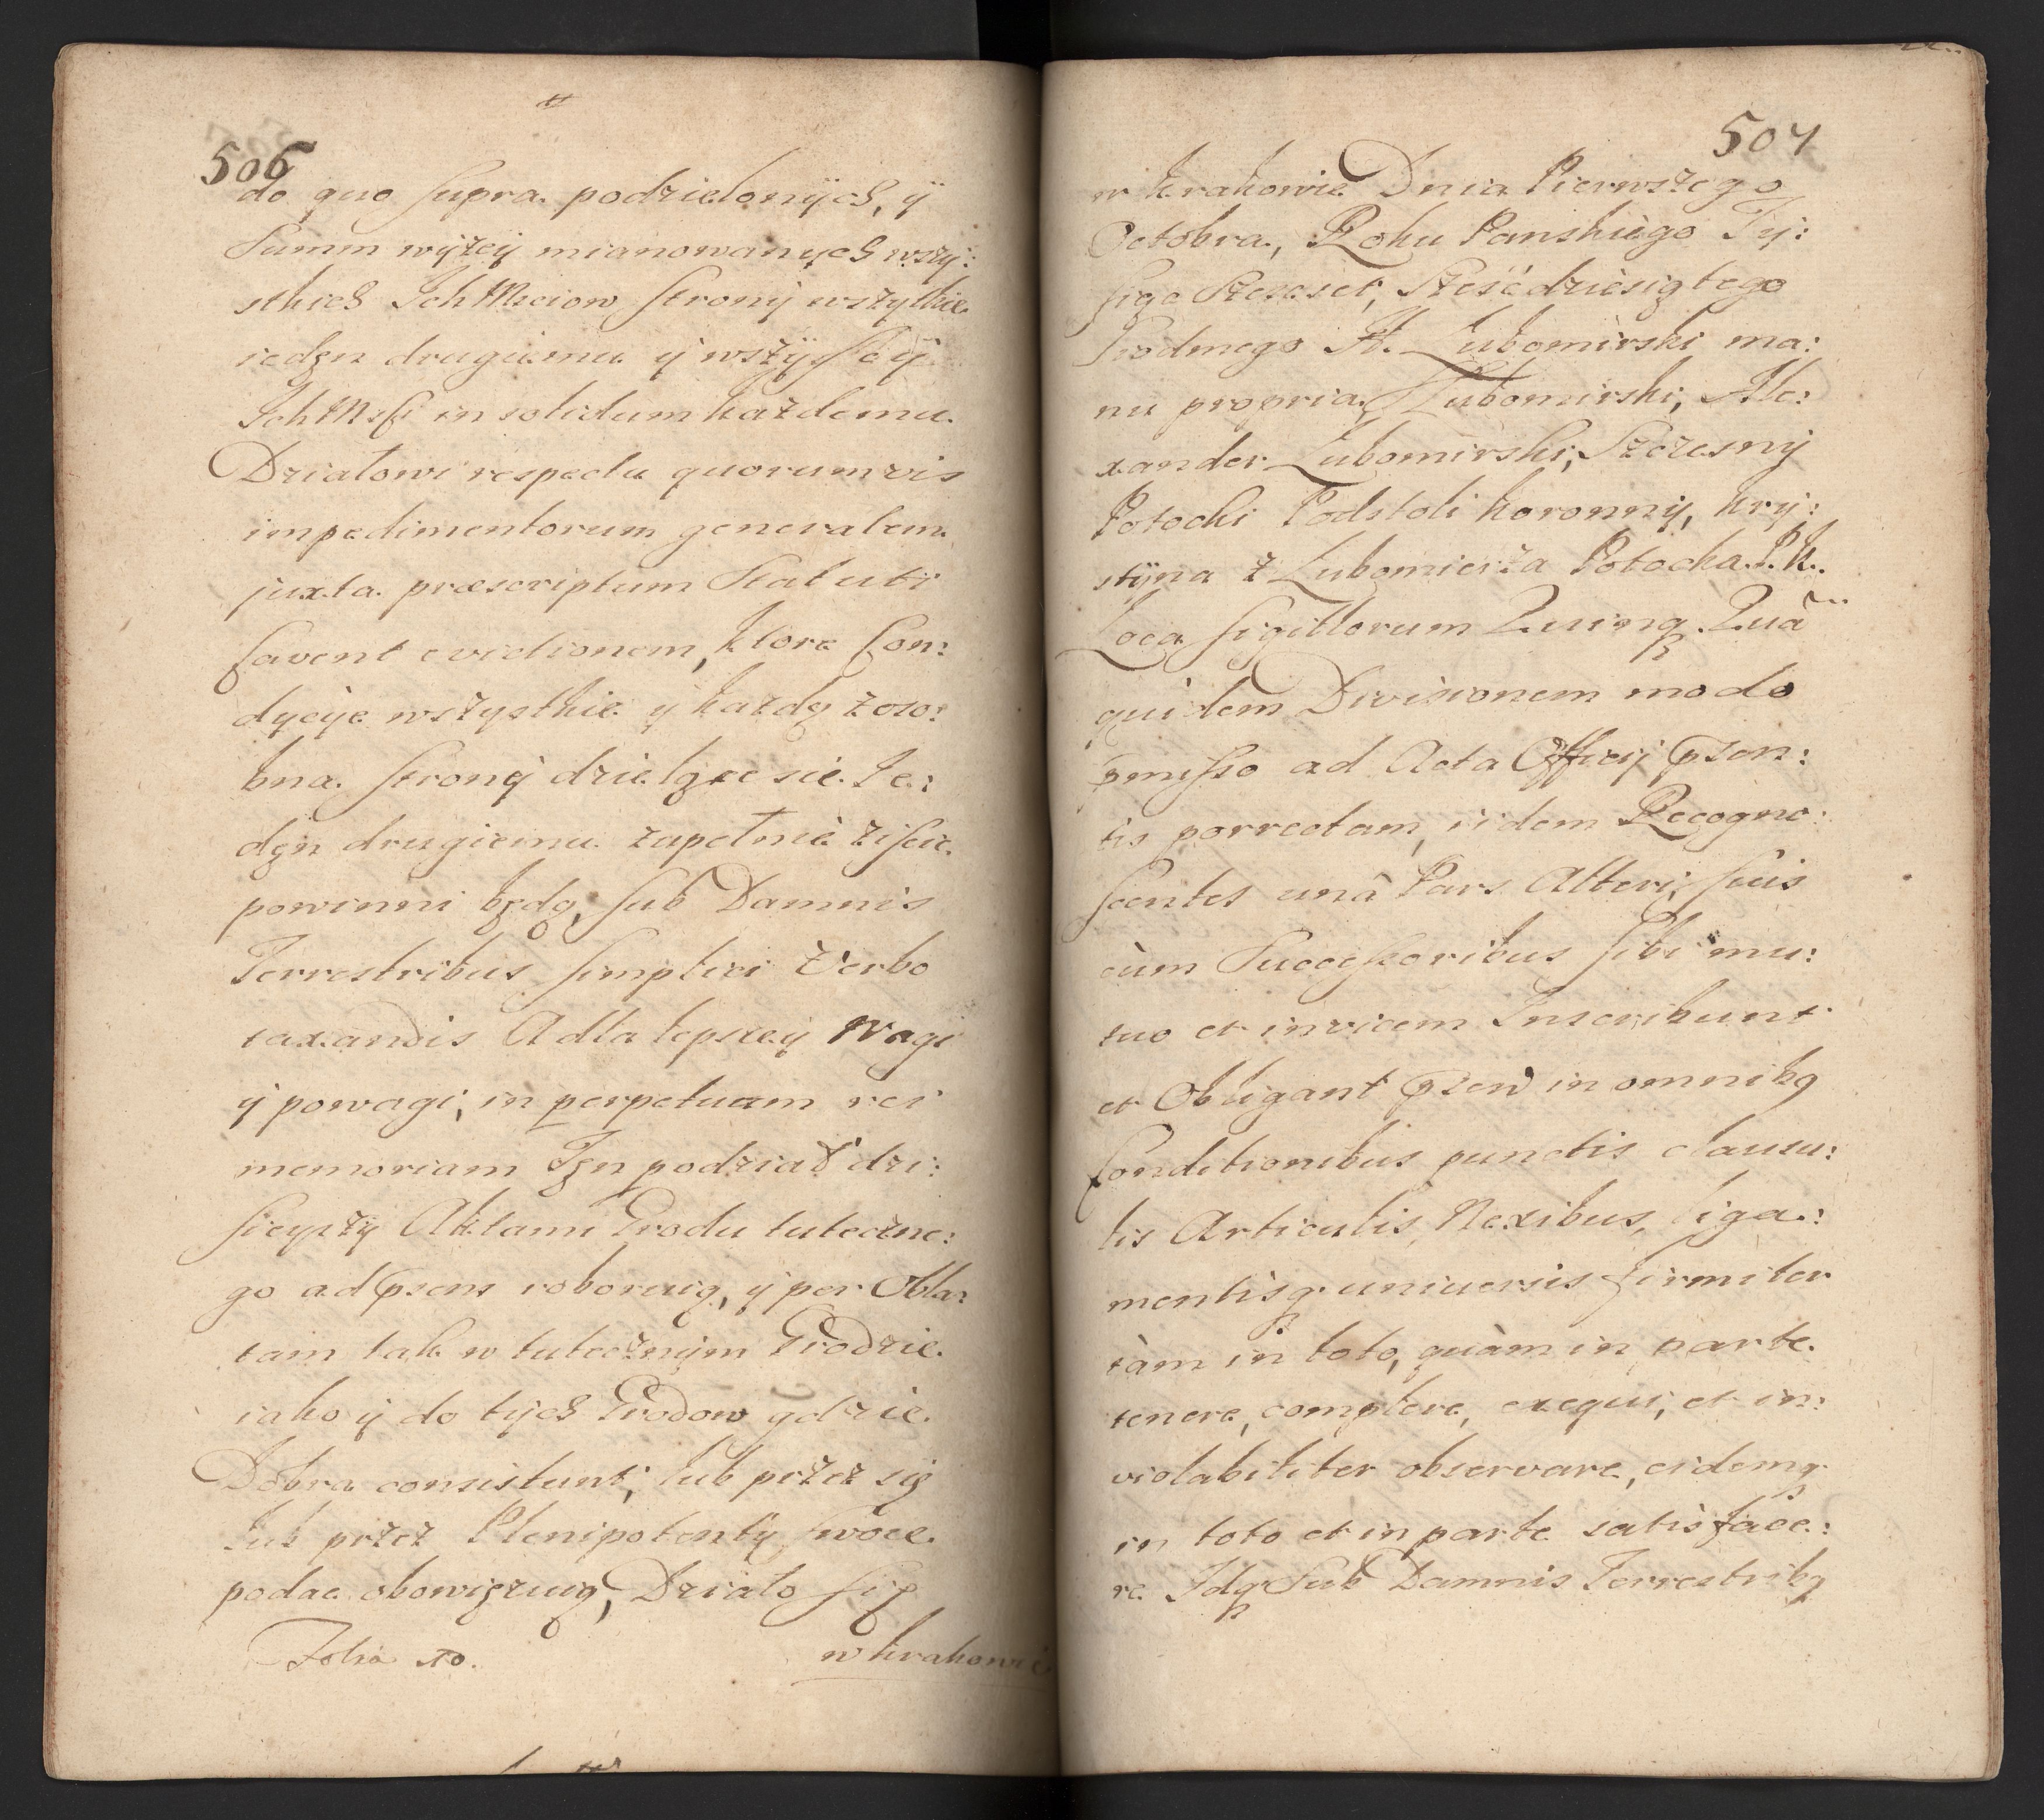 506
do quo supra podzielonych, y
Summ wyżey mianowanych wszy:
stkich Ich Mciow strony wszytkie
ieden drugiemu y wszyscy
Ich Mść in solidum każdemu
Działowi respectu quorumvis
impedimentorum generalem
juxta præscriptum Statuti
cavent evictionem, ktore Con:
dycye wszystkie y każdą zoso:
bna strony dzielące sie Ie:
den drugiemu zapełnie ziscic
powinni będą, sub Damnis
Terrestribus simplici Verbo
taxandis A dla lepszey Wagi
y powagi, in perpetuam rei
memoriam Ten podział dzi:
sieyszy Aktami Grodu tuteczne:
go ad psens roboruią, y per Obla:
tam tak w tutecznym Grodzie
iako y do tych Grodow gdzie
Dobra consistunt, lub przez się
lub przez Plenipotenty swoie
podac obowięzuią, Działo się
Folia 10.
w Krakowie
507
w Krakowie Dnia Pierwszego
Octobra, Roku Panskiego Ty:
siąc Szescset, Sześćdziesiątego
Siodmego A. Lubomirski ma:
nu propria, Lubomirski, Ale:
xander Lubomirski, Szczesny
Potocki Podstoli koronny, Kry:
styna z Lubomierza Potocka. P. K.
Loca sigillorum Quinq. Quã
quidem Divisionem modo
pmisso ad Acta Officij psen:
tis porrectam, iidem Recogno:
scentes una Pars Alteri, suis
cùm Successoribus sibi mu:
tuo et invicem Inscribunt
et Obligant psen in omnibq
Conditionibus punctis clausu:
lis Articulis, Nexibus, liga:
mentisq. universis firmiter
tàm in toto, quàm in parte
tenere, complere, exequi, et in:
violabiliter observare, eidemq
in toto et in parte satisface:
re Idq sub Damnis Terrestribq